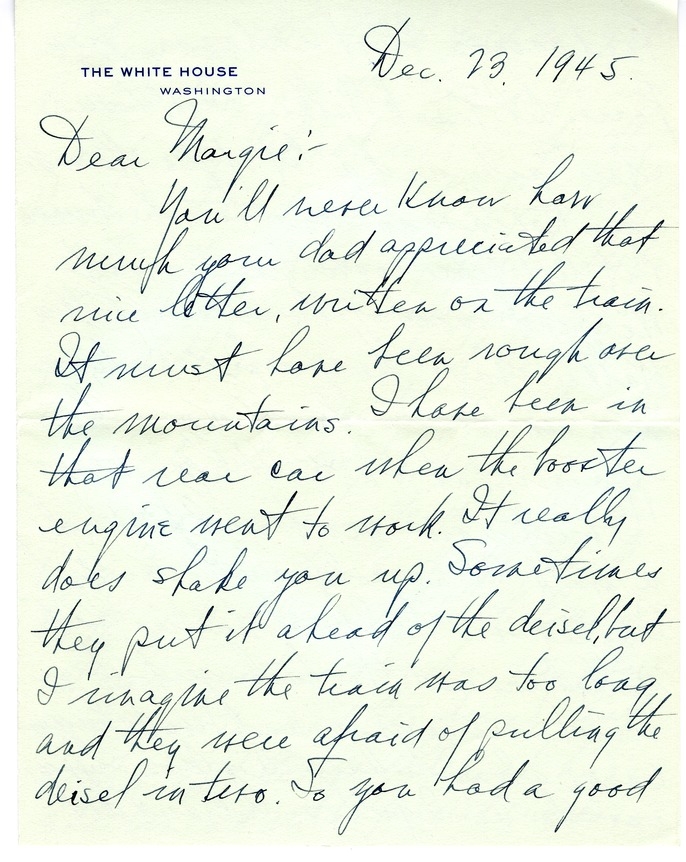 Dec. 23, 1945.
THE WHITE HOUSE
WASHINGTON
Dear Margie:-
You'll never know how
much your dad appreciated that
nice letter, written on the train.
It must have been rough over
the mountains. I have been in
that rear car when the booster
engine went to work. It really
does shake you up. Sometimes
they put it ahead of the deisel, but
I imagine the train was too long
and they were afraid of pulling the
deisel in two. So you had a good